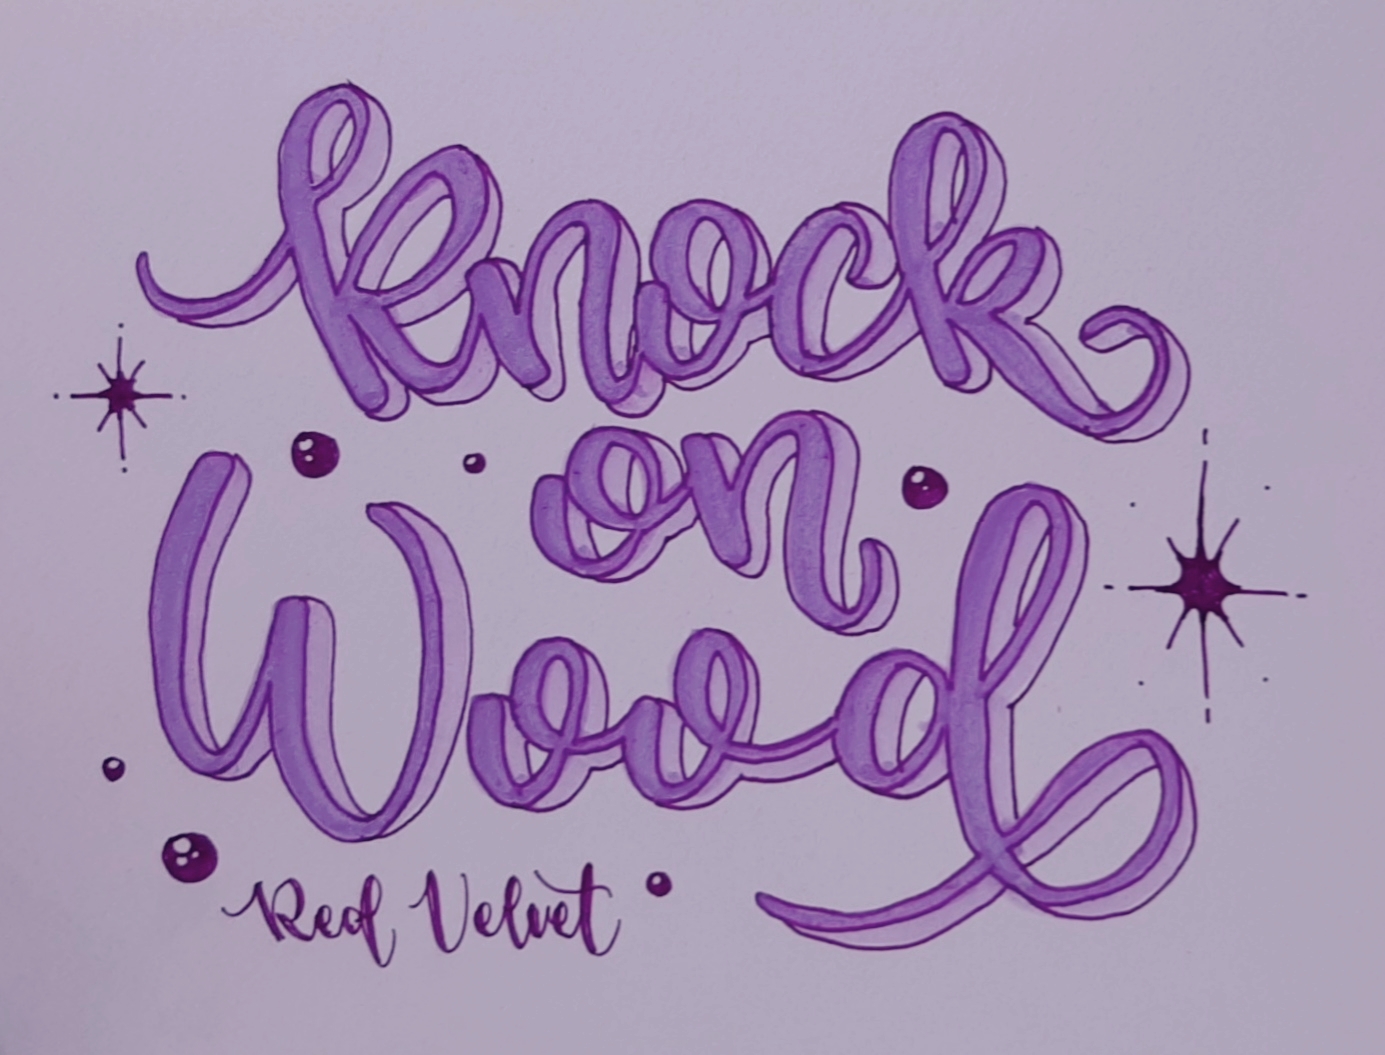 Knock
on
Wood
Red Velvet